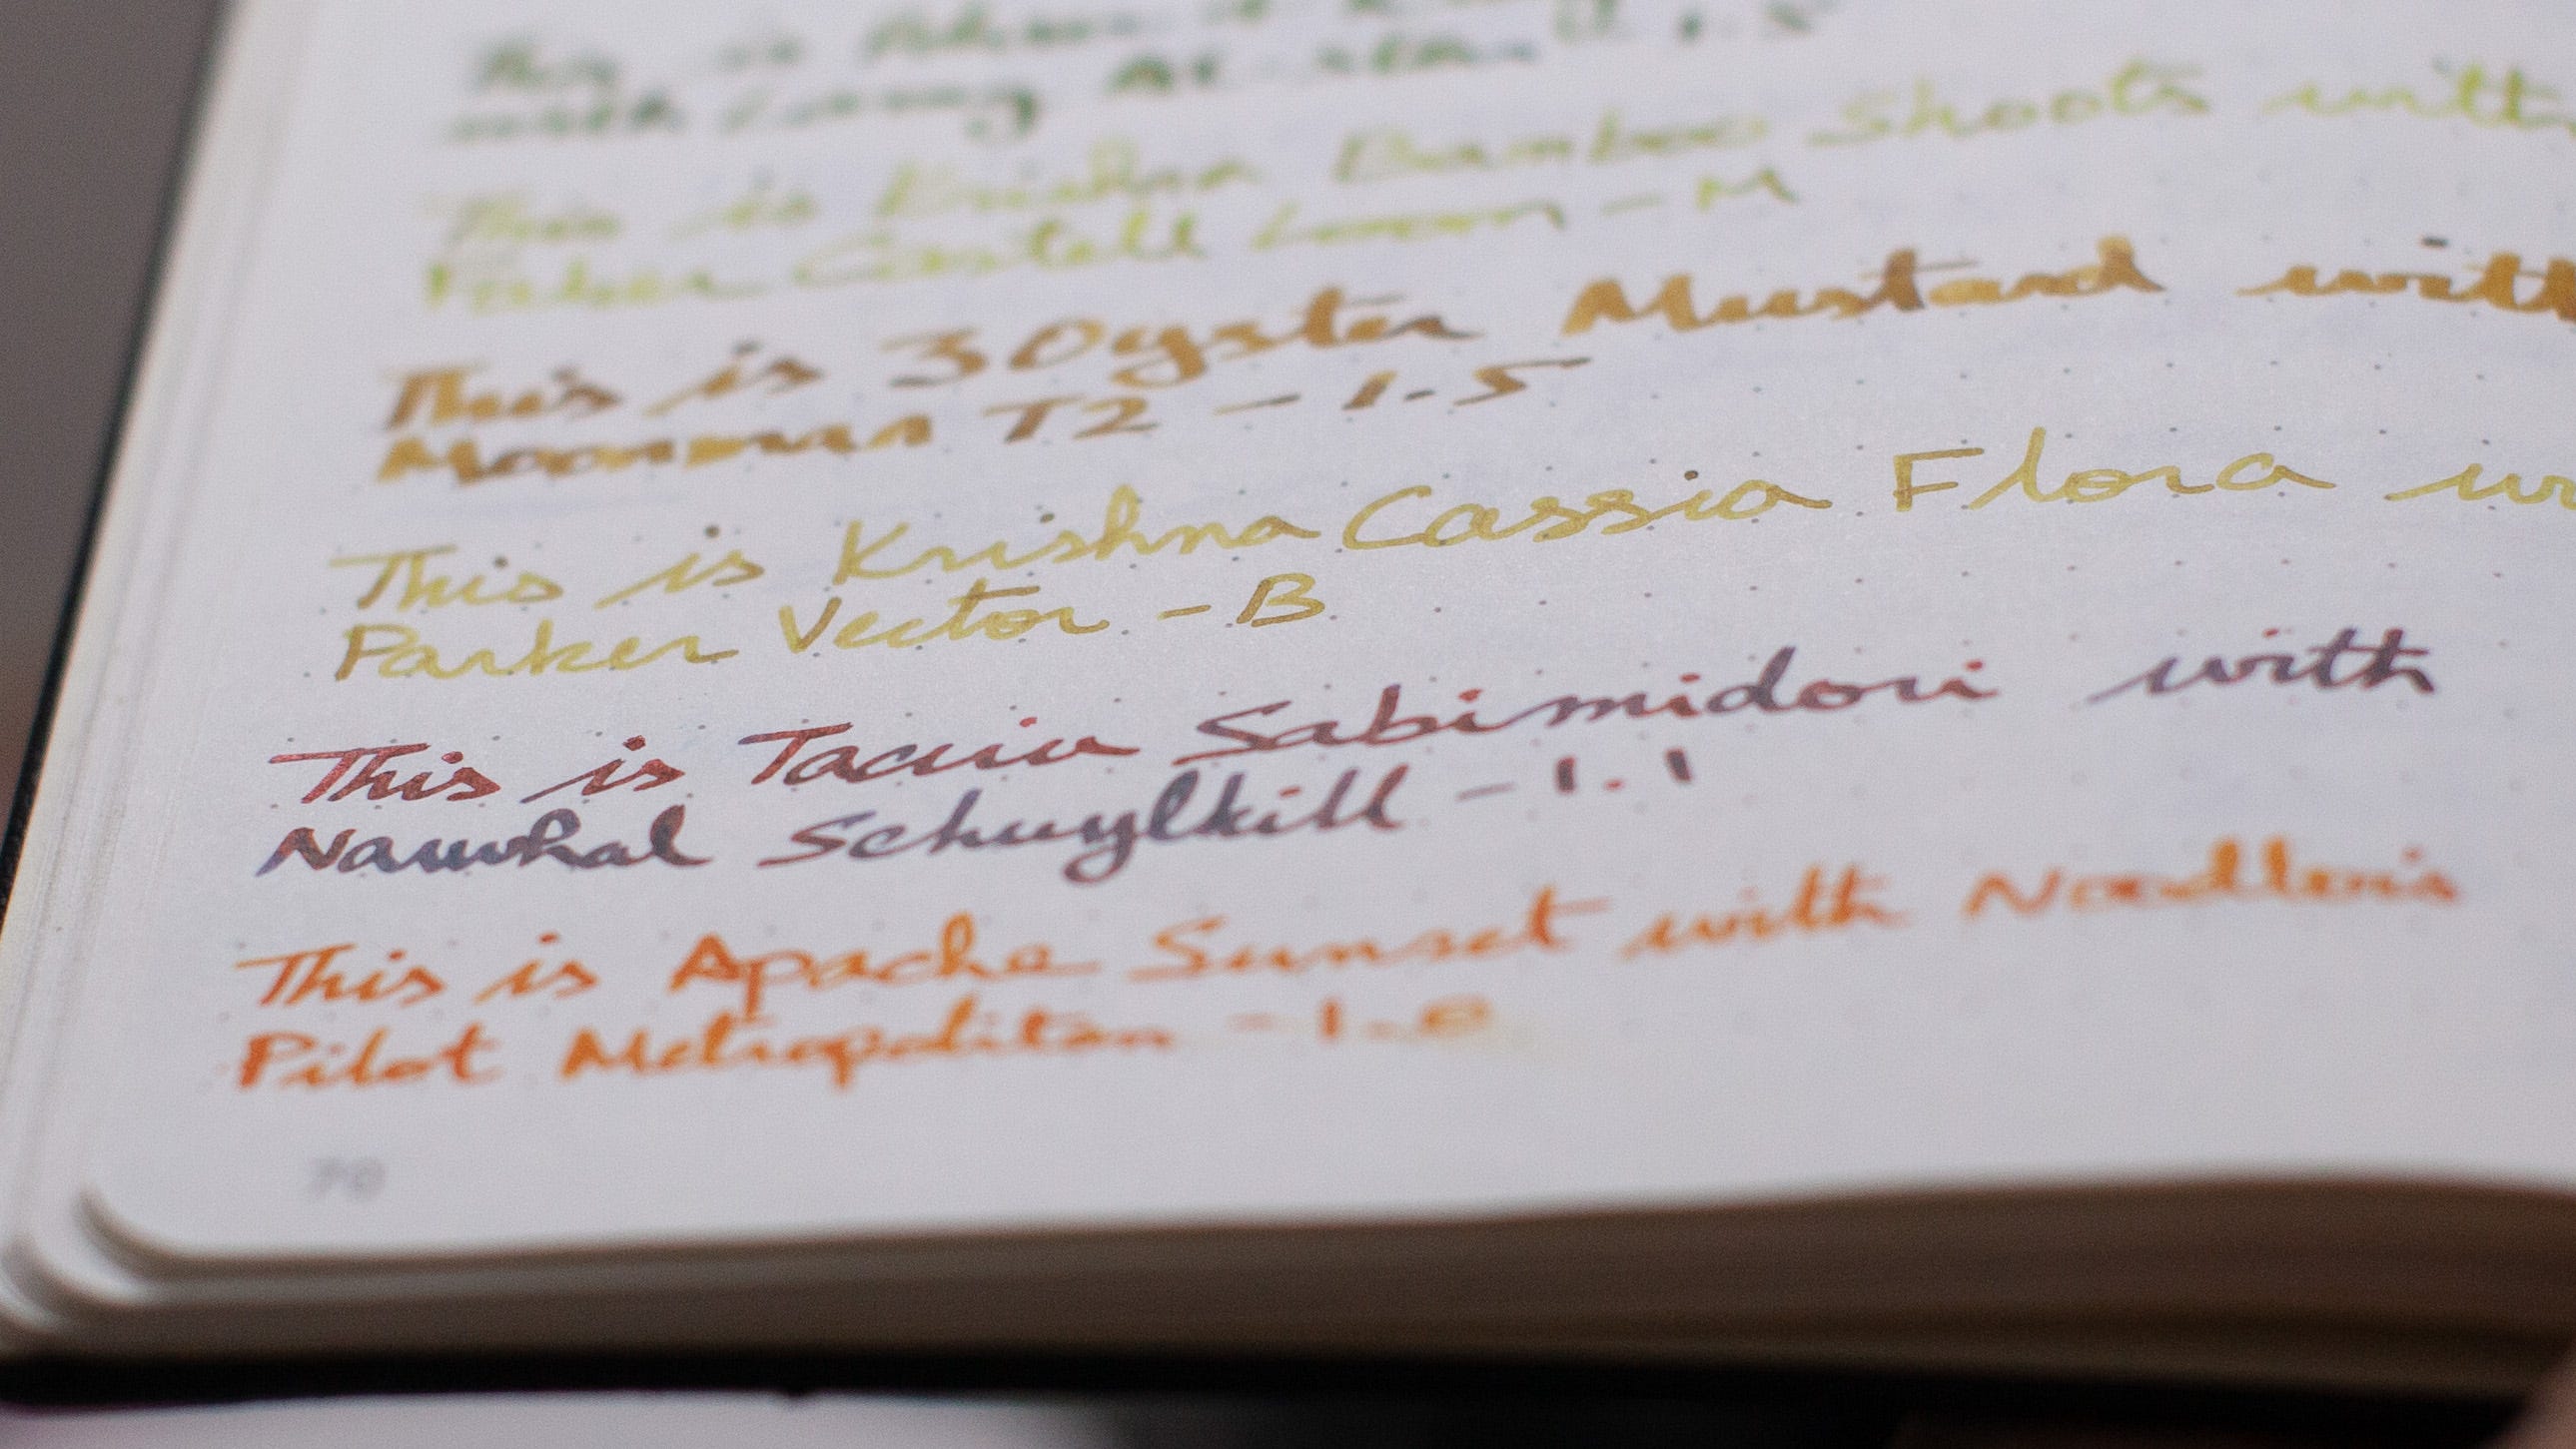 This is
with Lamy Al-star 1.5
This is Krishna Bamboo Shoots with
Faber Castell Loom - M
This is 3 Oyster Mustard with
Moonman T2 - 1.5
This is Krishna Cassia Flora
Parker Vector - B
This is Taccia Sabimidori with
Nahvalur Schuylkill - 1.1
This is Apache Sunset with Noodler's
Pilot Metropolitan - 1.0
70